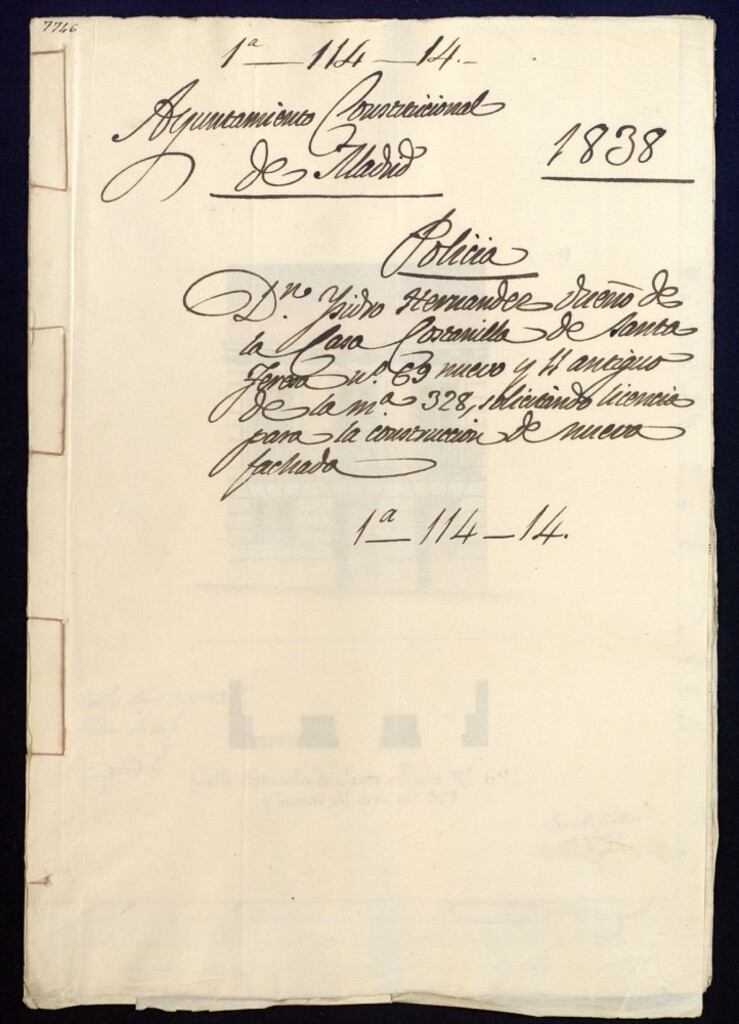 7746
1ª — 114 — 14.-
Ayuntamiento Constitucional
de Madrid
1838
Policia
D.n Ysidro Hernandez dueño de
la Casa Costanilla de Santa
Teresa nº. 69 nuevo y 11 antiguo
de la m.ª 328, solicitando licencia
para la construccion de nueva
fachada
1ª — 114 — 14.